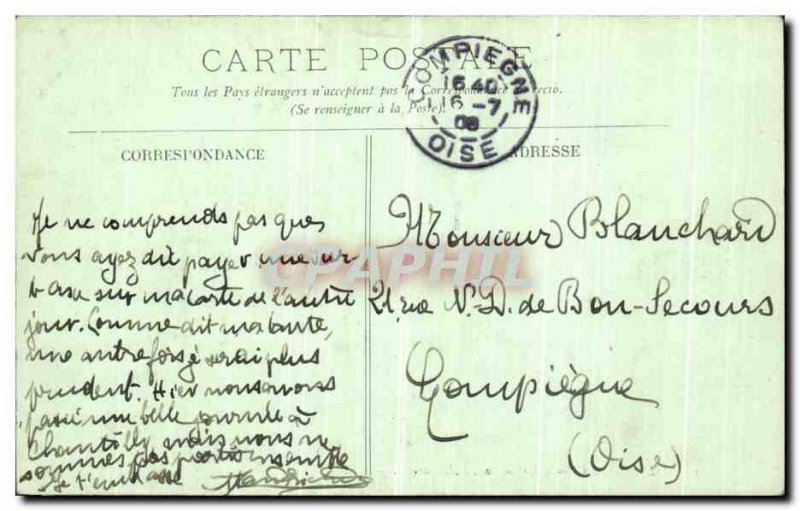 CARTE POSTALE
Tous les Pays étrangers n'acceptent pas la Correspondance au recto.
(Se renseigner à la Poste).
COMPIEGNE
16 40
16 -7
08
OISE
CORRESPONDANCE
ADRESSE
Je ne comprends pas que
vous ayez dit payer une sur-
taxe sur ma carte de l'autre
jour. Comme dit ma tante,
une autre fois je serai plus
prudent. Hier nous avons
passé une belle journée à
Chantilly, mais nous ne
sommes pas partis ensemble
Je t'embrasse
Monsieur Blanchard
21, rue N.-D. de Bon-Secours
Compiègne
(Oise)
CPAPHIL